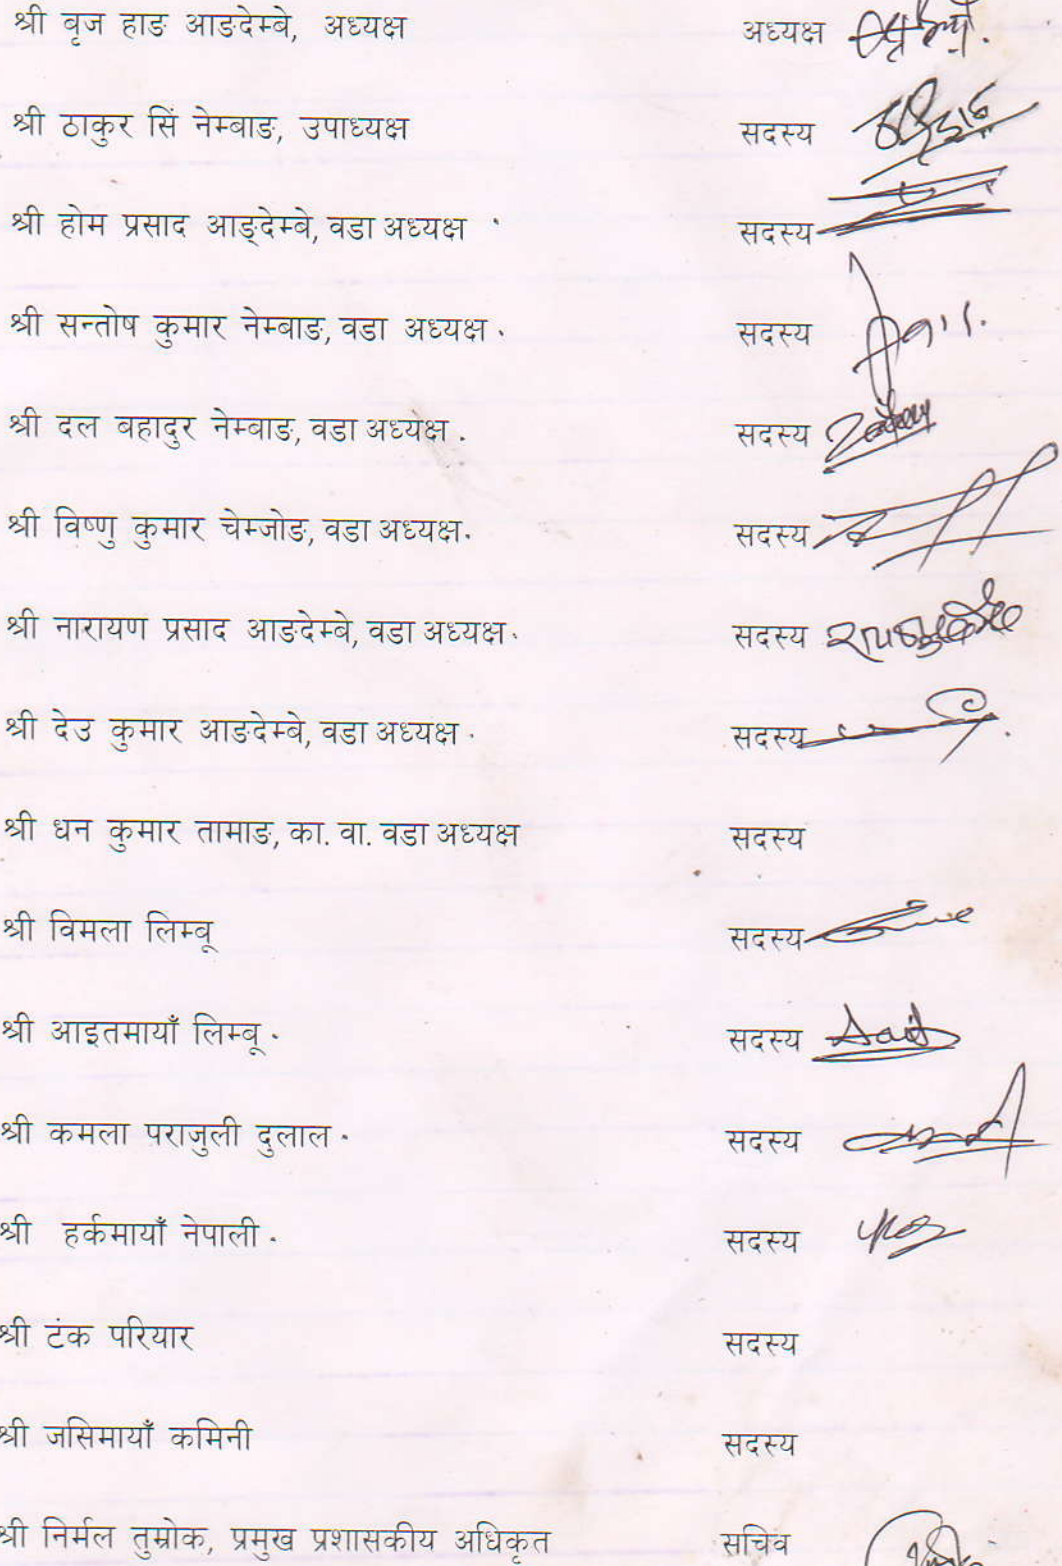 श्री वृज हाङ आङदेम्बे, अध्यक्ष अध्यक्ष
श्री ठाकुर सिं नेम्बाङ, उपाध्यक्ष सदस्य
श्री होम प्रसाद आङ्देम्बे, वडा अध्यक्ष सदस्य
श्री सन्तोष कुमार नेम्बाङ, वडा अध्यक्ष . सदस्य
श्री दल बहादुर नेम्बाङ, वडा अध्यक्ष . सदस्य
श्री विष्णु कुमार चेम्जोङ, वडा अध्यक्ष. सदस्य
श्री नारायण प्रसाद आङदेम्बे, वडा अध्यक्ष. सदस्य
श्री देउ कुमार आङदेम्बे, वडा अध्यक्ष . सदस्य
श्री धन कुमार तामाङ, का. वा. वडा अध्यक्ष सदस्य
श्री विमला लिम्बू सदस्य
श्री आइतमायाँ लिम्बू . सदस्य
श्री कमला पराजुली दुलाल . सदस्य
श्री हर्कमायाँ नेपाली . सदस्य
श्री टंक परियार सदस्य
श्री जसिमायाँ कमिनी सदस्य
श्री निर्मल तुम्रोक, प्रमुख प्रशासकीय अधिकृत सचिव